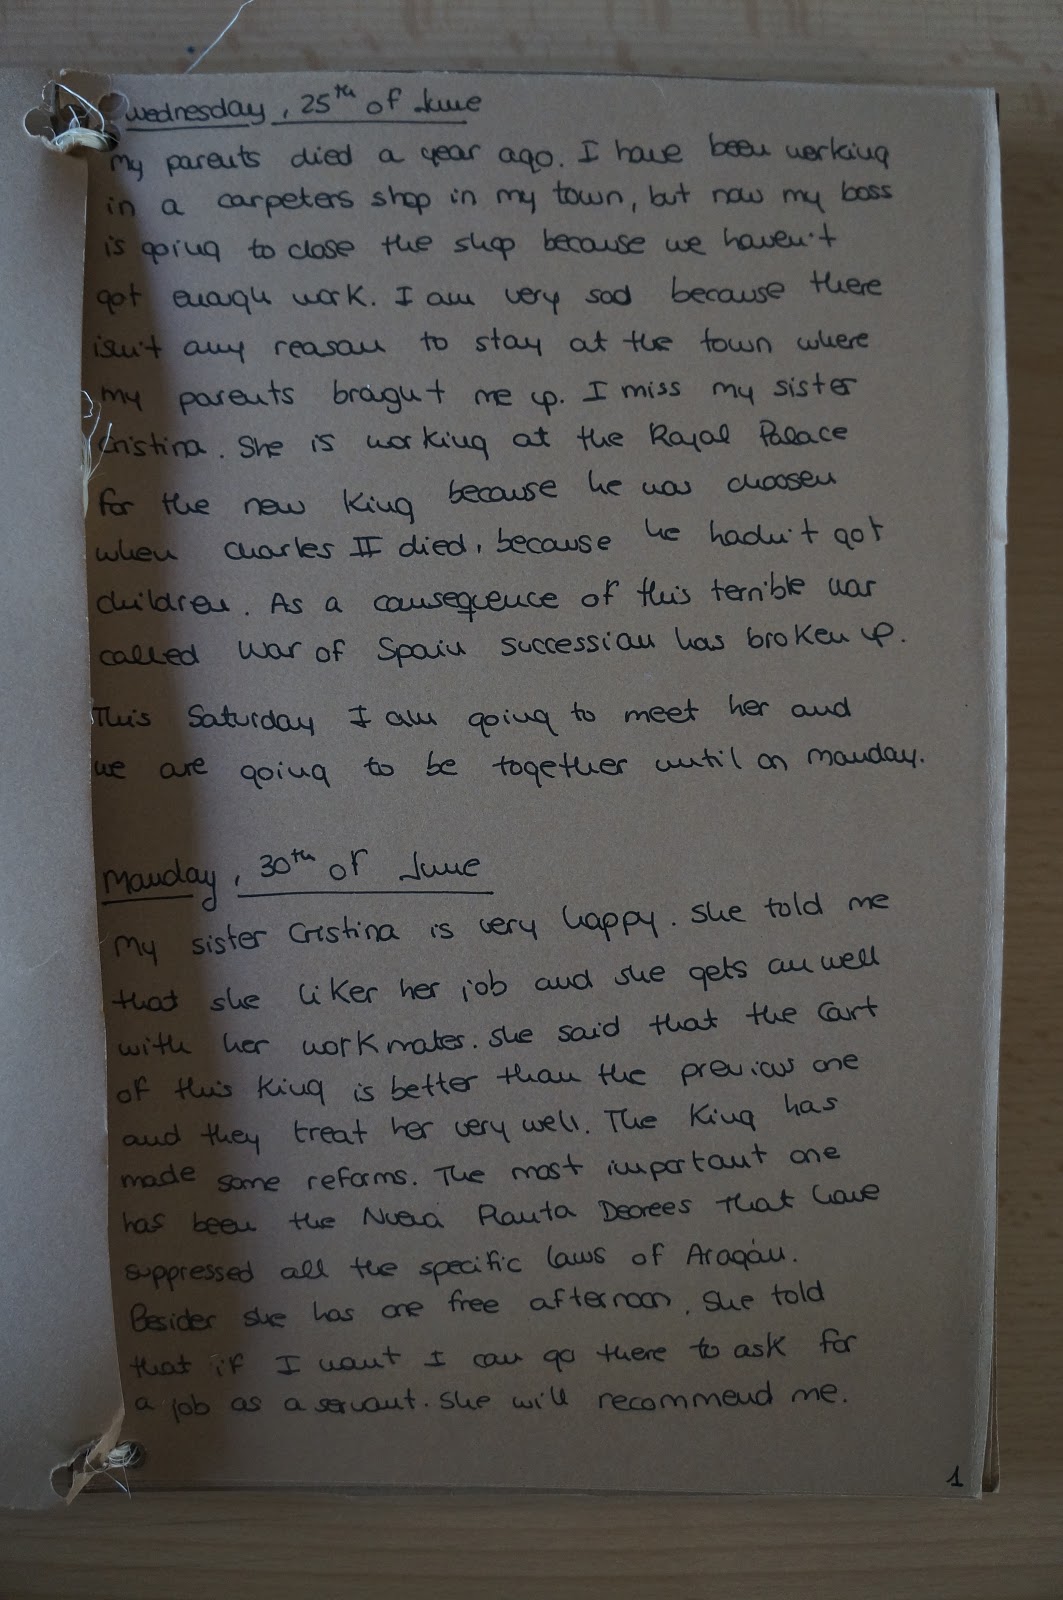 Wednesday, 25th of June
My parents died a year ago. I have been working
in a carpeters shop in my town, but now my boss
is going to close the shop because we haven't
got enough work. I am very sad because there
isn't any reason to stay at the town where
my parents bragut me up. I miss my sister
Cristina. She is working at the Royal Palace
for the new King because he was choosen
when Charles II died, because he hadn't got
children. As a consequence of this terrible war
called War of Spain succession has broken up.
This Saturday I am going to meet her and
we are going to be together until on monday.
Monday, 30th of June
My sister Cristina is very happy. She told me
that she liker her job and she gets on well
with her workmates. She said that the Cort
of this King is better than the previous one
and they treat her very well. The King has
made some reforms. The most important one
has been the Nueva Planta Decrees that have
suppressed all the specific laws of Aragón.
Besider she has one free afternoon. She told
that if I want I can go there to ask for
a job as a servant. She will recommend me.
1